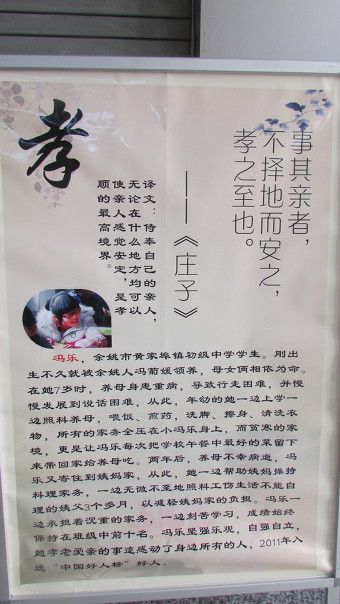 孝
事其亲者，
不择地而安之，
孝之至也。
——《庄子》
译文：侍奉自己的亲人，
无论在什么地方均可以
使亲人感觉安定，是孝
顺的最高境界。
冯乐，余姚市黄家埠镇初级中学学生。刚出
生不久就被余姚人冯菊媛领养，母女俩相依为命。
在她7岁时，养母身患重病，导致行走困难，并慢
慢发展到说话困难，从此，年幼的她一边上学一
边照料养母，喂饭、煎药、洗脚、擦身、清洗衣
物，所有的家务全压在小冯乐身上，而贫寒的家
境，更是让冯乐每次把学校午餐中最好的菜留下
来带回家给养母吃。两年后，养母不幸病逝，冯
乐又寄住到姨妈家，从此，她一边帮助姨妈操持
料理家务，一边无微不至地照料工伤生活不能自
理的姨父3个多月，以减轻姨妈家的负担。冯乐一
边承担着沉重的家务，一边刻苦学习，成绩始终
保持在班级中前十名。冯乐坚强乐观，自强自立，
她孝老爱亲的事迹感动了身边所有的人，2011年入
选“中国好人榜”好人。